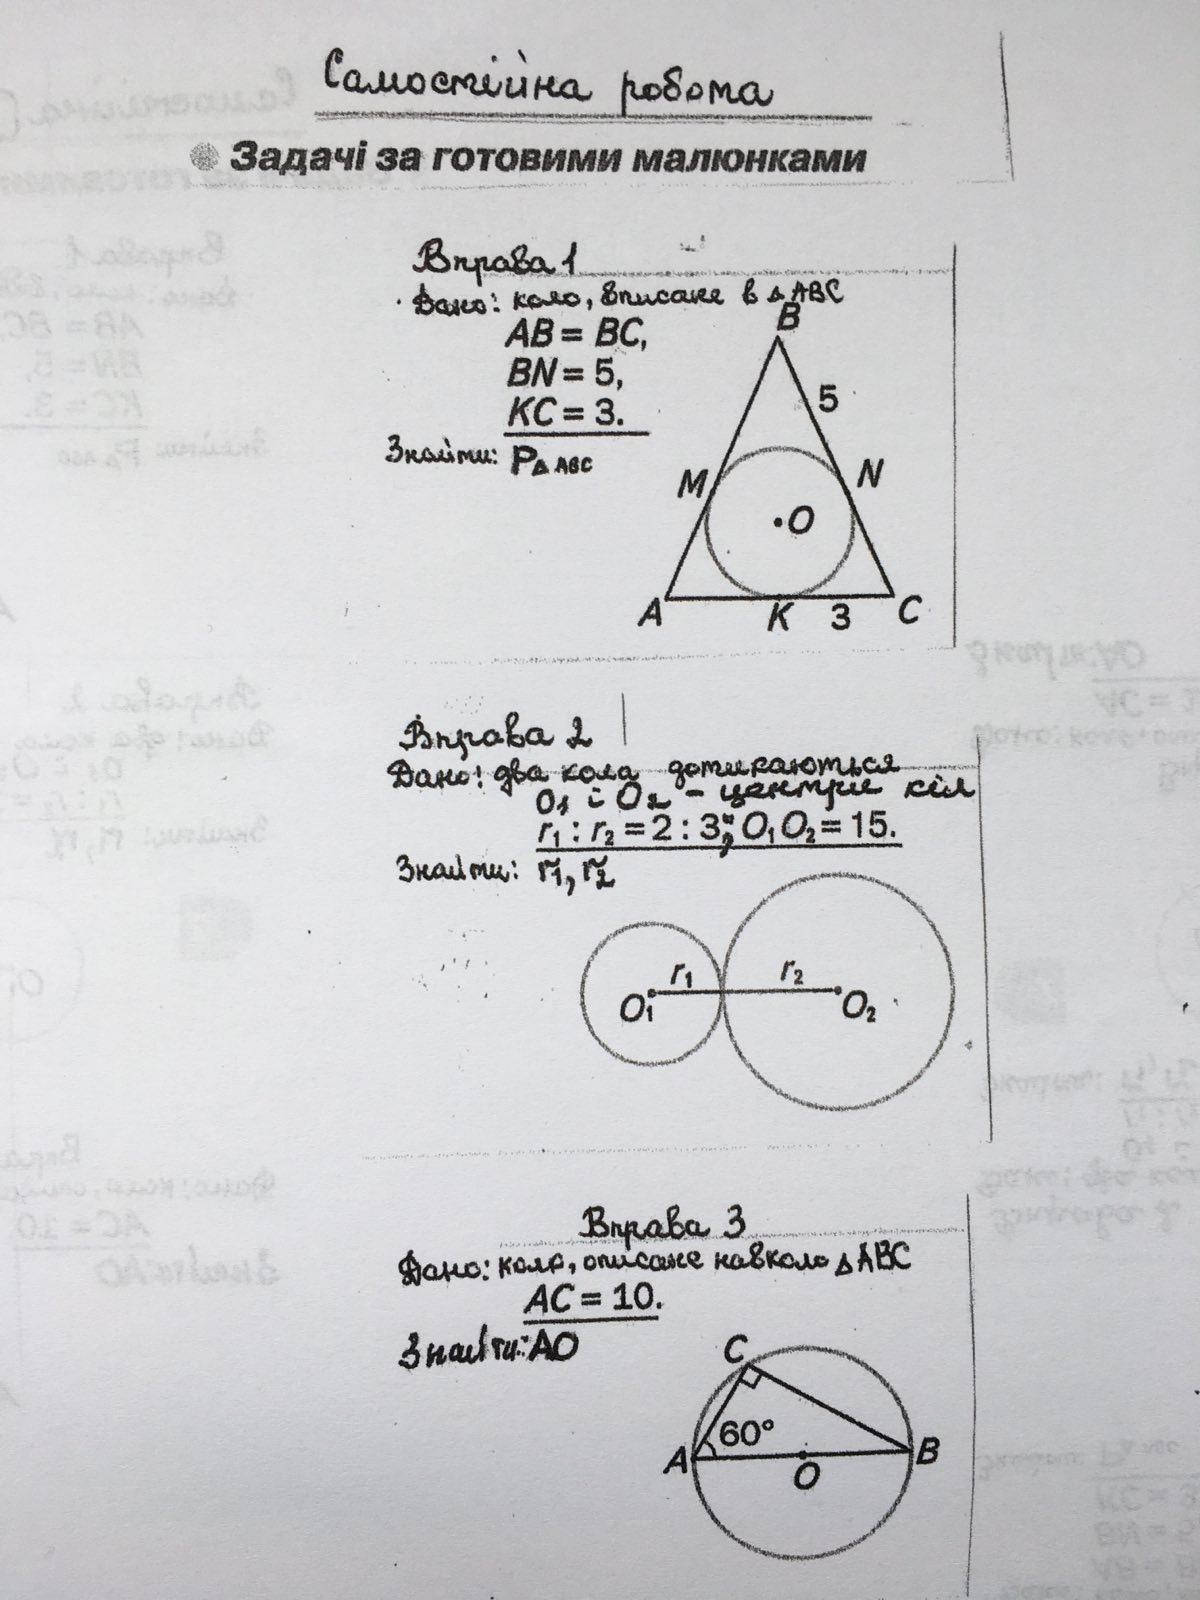 Самостійна робота
Задачі за готовими малюнками
Вправа 1
Дано: коло, вписане в △ABC
AB = BC,
BN = 5,
KC = 3.
Знайти: P△ABC
B
5
M
N
O
A
K
3
C
Вправа 2
Дано: два кола дотикаються
O₁ і O₂ – центри кіл
r₁ : r₂ = 2 : 3; O₁O₂ = 15.
Знайти: r₁, r₂
r₁
r₂
O₁
O₂
Вправа 3
Дано: коло, описане навколо △ABC
AC = 10.
Знайти: AO
C
60°
A
B
O